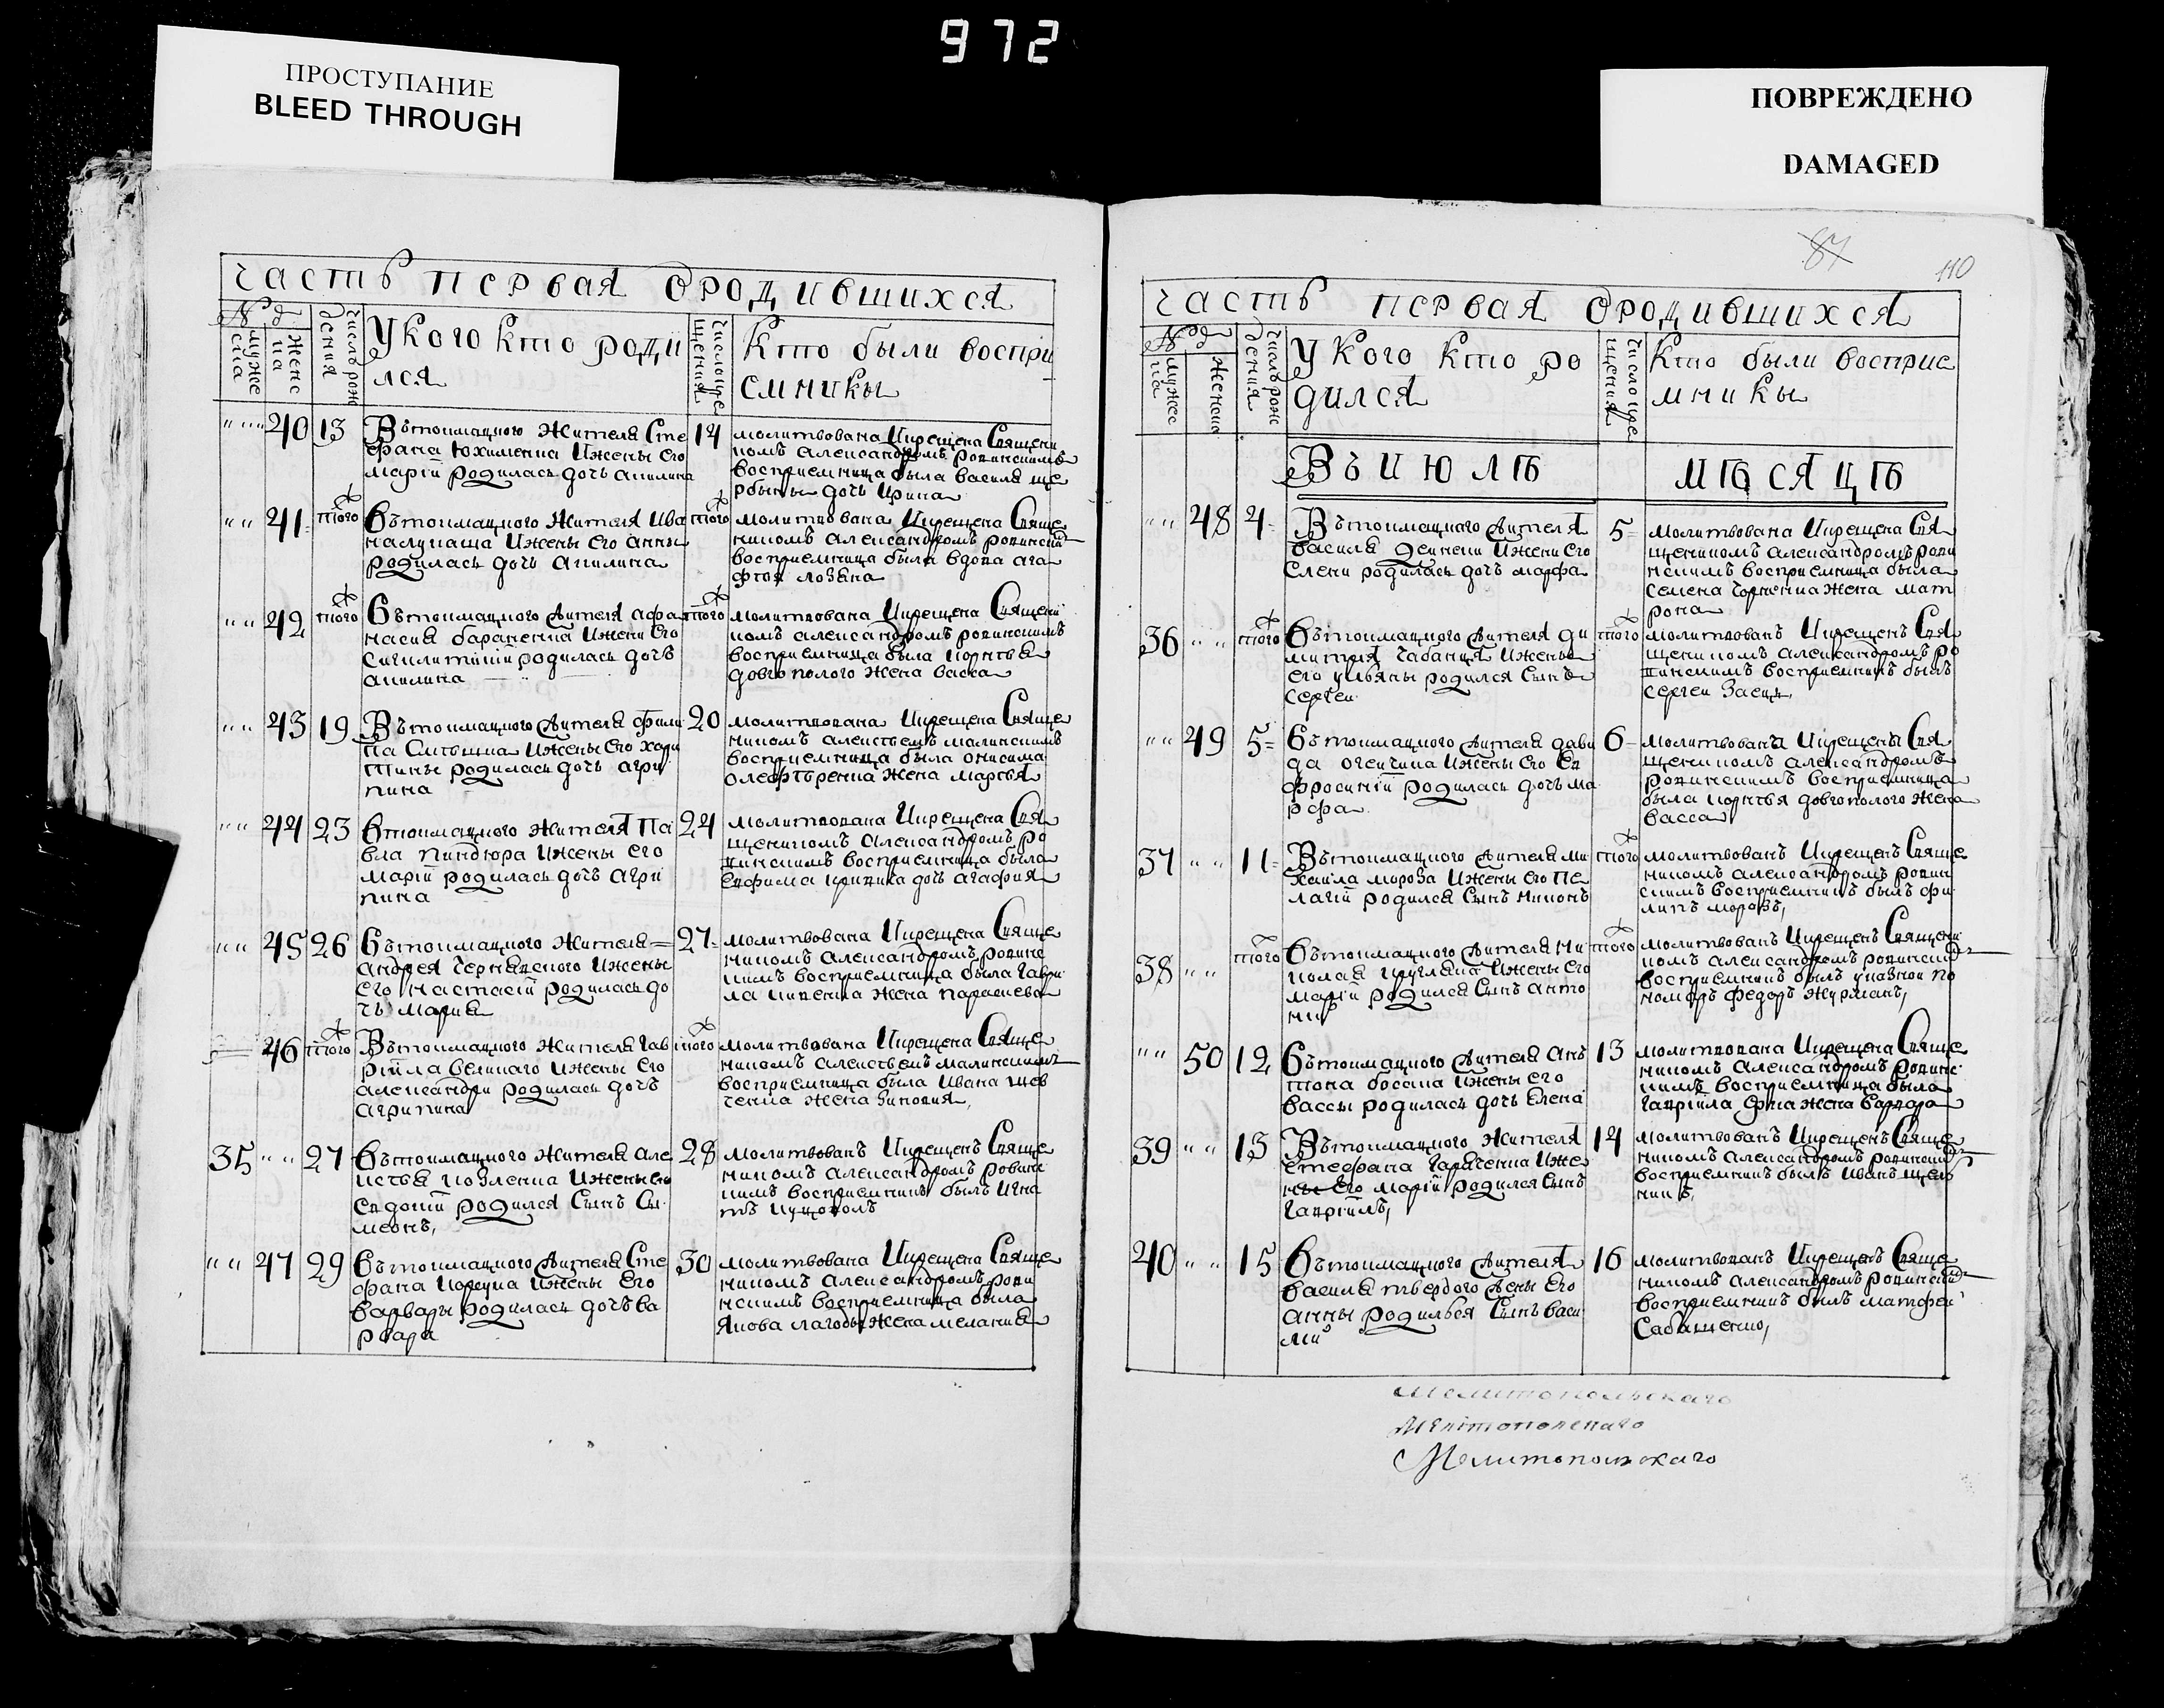 972
ПРОСТУПАНИЕ
BLEED THROUGH
ПОВРЕЖДЕНО
DAMAGED
87
110
Часть первая ородившихся
№ д
мужеска
женска
число рождения
У кого кто роди
лся
число крещения
Кто были воспри
емники
40 13 Въ тоімацкого жителя Сте
фана Юхименка И жены его
маріи родилась дочь акилина
14 молитвована И крещена Священи
комъ александромъ ровинскимъ
восприемница была василя ще
рбины дочь Ирина
41 того въ тоімацкого жителя Ива
на лупаша И жены его анны
родилась дочь акилина
того молитвована И крещена Свяще
никомъ александромъ ровински
восприемница была вдова ага
фія
42 того въ тоімацкого жителя афа
насия бараненка И жени его
родилась дочь
акилина
того молитвована И крещена Священи
комъ александромъ ровинскимъ
восприемница была корнѣя
довгополого жена васса
43 19 Въ тоімацкого жителя фили
па И жены его хари
тины родилась дочь агри
пина
20 молитвована И крещена Свяще
никомъ алексѣемъ малинскимъ
восприемница была онисима
жена марфа
44 23 в тоімацкого жителя Па
вла пиндюра И жены его
маріи родилась дочь агри
пина
24 молитвована И крещена Свя
щеникомъ александромъ ро
винскимъ восприемница была
Евфима дочь агафия
45 26 въ тоімацкого жителя
андрея чернявского И жены
его настасіи родилась до
чь мария
27 молитвована И крещена Свяще
никомъ александромъ ровинс
кимъ восприемница была гаври
ла жена параскева
46 того Въ тоімацкого жителя гав
ріила великого И жены его
александри родилась дочь
агрипина
того молитвована И крещена Свяще
никомъ алексѣемъ малинскимъ
восприемница была Ивана шев
ченка жена зиновия
35 27 въ тоімацкого жителя але
ксѣя козленка И жены его
Евдокіи родился Сынъ Си
меонъ,
28 молитвованъ И крещенъ Свяще
никомъ александромъ ровинс
кимъ восприемникъ былъ Игна
тъ
47 29 въ тоімацкого жителя Сте
фана И жены его
варвары родилась дочь ва
рвара
30 молитвована И крещена Свяще
никомъ александромъ рови
нскимъ восприемница была
якова лагоды жена мелания
Часть первая ородившихся
№ д
мужеска
женска
число рождения
У кого кто ро
дился
число крещения
Кто были восприе
мники
Въ Июлѣ мѣсяцѣ
48 4 Въ тоімацкого жителя
василя И жени его
Елени родилась дочь марфа
5 молитвована И крещена Свя
щеникомъ александромъ рови
нскимъ восприемница была
семена жена мат
рона
36 того въ тоімацкого жителя ди
митрія чабанця И жены
его ульяны родился Сынъ
сергеи
того молитвованъ И крещенъ Свя
щеникомъ александромъ ро
винскимъ восприемникъ былъ
сергеи Заецъ,
49 5 въ тоімацкого жителя дави
да И жены его Ев
фросиніи родилась дочь ма
рфа
6 молитвована И крещены Свя
щеникомъ александромъ
ровинскимъ восприемница
была корнѣя довгополого жена
васса
37 11 Въ тоімацкого жителя ми
хаила мороза И жены его пе
лагіи родился Сынъ никонъ
того молитвованъ И крещенъ Свяще
никомъ александромъ ровин
скимъ восприемникъ былъ фи
липъ морозъ,
38 того въ тоімацкого жителя ни
колая кругляка И жены его
маріи родился Сынъ анто
ніи
того молитвованъ И крещенъ Священи
комъ александромъ ровински
восприемникъ былъ указнои по
номарь федоръ журманъ,
50 12 въ тоімацкого жителя ан
тона босака И жены его
вассы родилась дочь Елена
13 молитвована И крещена Свяще
никомъ александромъ ровинс
кимъ восприемница была
гавріила жена варвара
39 13 Въ тоімацкого жителя
стефана И же
ны его маріи родился Сынъ
гавріилъ,
14 молитвованъ И крещенъ Свяще
никомъ александромъ ровински
восприемникъ былъ Иванъ
40 15 въ тоімацкого жителя
василя твердого жены его
анны родилься Сынъ васи
лии
16 молитвованъ И крещенъ Свяще
никомъ александромъ ровински
восприемникъ былъ матфеи
Сабашенко,
Мелитопольскаго
Мелитополскаго
Мелитопольскаго